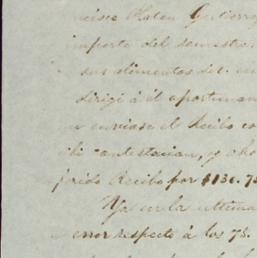 ncisco Mateu Gutierre
importe del semestre
sus alimentos del
dirigí á él oportunam
enviase el Recibo co
contestacion, y aho
ferido Recibo por $136.75
Ya en la ultima
error respecto á los 75.